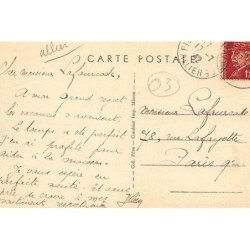 allier
CARTE POSTALE
03
Cher monsieur Lafourcade,
A mon grand regret
les vacances s'avancent
Le temps a été parfait
j'en ai profité pour
aider à la maison.
Je vous espère en
parfaite santé. Et vous
prie de croire à mes
sentiments
Monsieur Lafourcade
78, rue Lafayette
Paris 9me